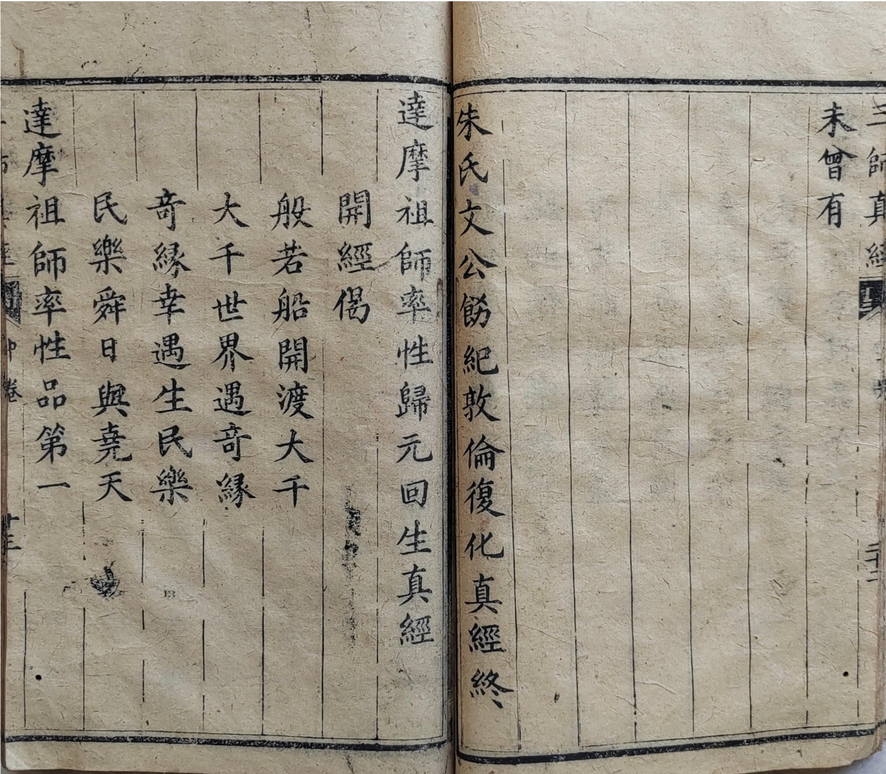 三師真經
未曾有
朱氏文公飭紀敦倫復化真經終
達摩祖師率性歸元回生真經
開經偈
般若船開渡大千
大千世界遇竒縁
竒緣幸遇生民樂
民樂舜日與堯天
達摩祖師率性品第一
卷
十三